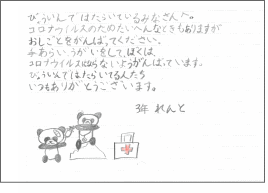 びょういんではたらいているみなさんへ。
コロナウイルスのためたいへんなときもありますが
おしごとをがんばってください。
手あらいうがいをして、ぼくは、
コロナウイルスにならないようがんばっています。
びょういんではたらいてる人たち
いつもありがとうございます。
3年 れんと